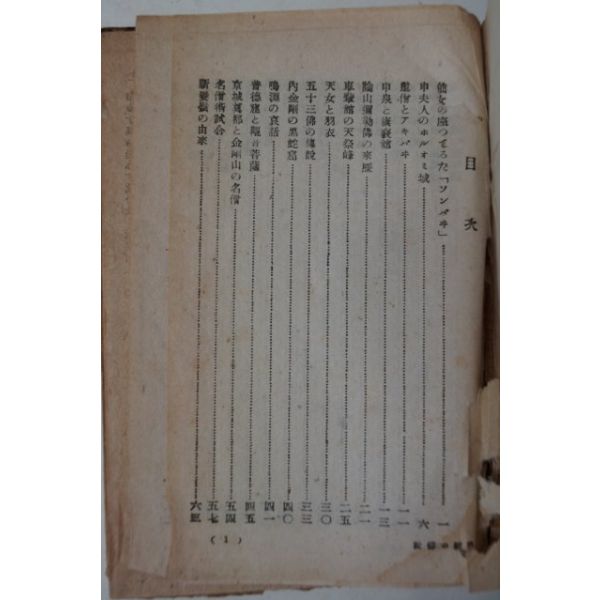 目次
仙女の座つてゐた「ソンバヰ」 一
申夫人のホルオミ城 六
童僧とアキバヰ 一一
申泉と 一三
陰山彌勒佛の來歷 二一
車 館の天祭峰 二五
天女と羽衣 三〇
五十三佛の傳說 三三
內金剛の黑蛇窟 四〇
鳴淵の哀話 四一
普德窟と觀音菩薩 四五
京城 郡と金剛山の名僧 五四
名僧術試合 五七
新 の由來 六三
( 1 )